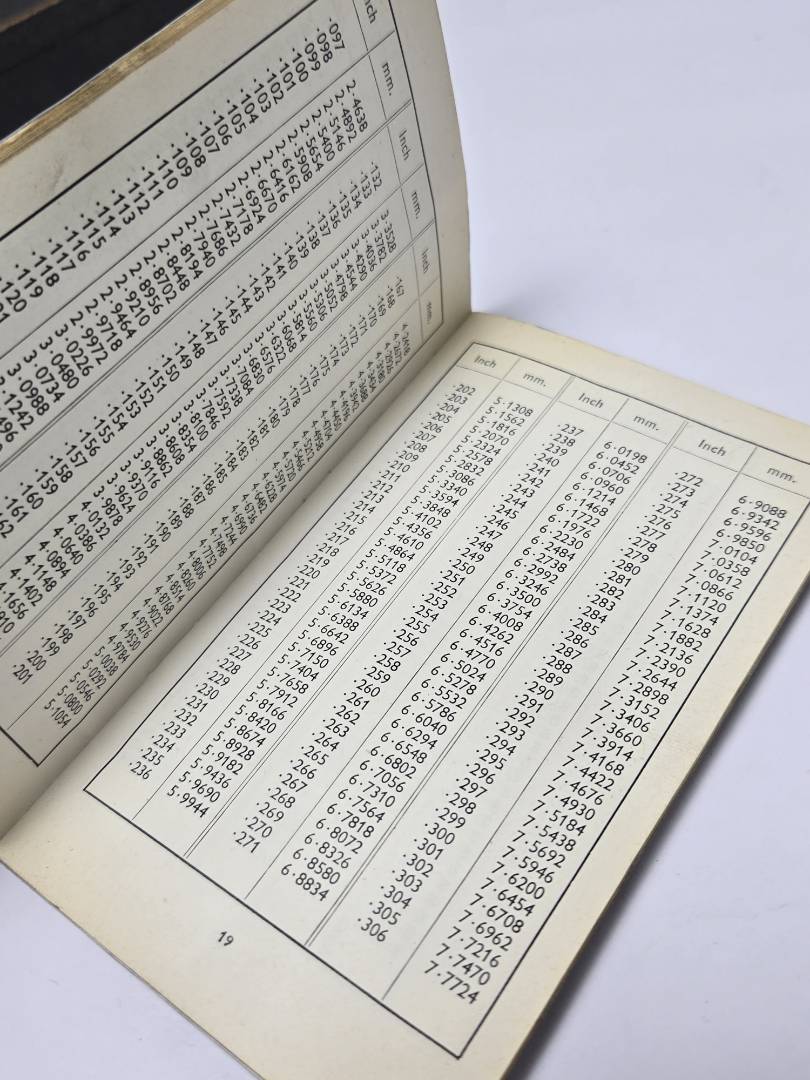 Inch mm. Inch mm. Inch mm.
·097 2·4638 ·132 3·3528 ·167 4·2418
·098 2·4892 ·133 3·3782 ·168 4·2672
·099 2·5146 ·134 3·4036 ·169 4·2926
·100 2·5400 ·135 3·4290 ·170 4·3180
·101 2·5654 ·136 3·4544 ·171 4·3434
·102 2·5908 ·137 3·4798 ·172 4·3688
·103 2·6162 ·138 3·5052 ·173 4·3942
·104 2·6416 ·139 3·5306 ·174 4·4196
·105 2·6670 ·140 3·5560 ·175 4·4450
·106 2·6924 ·141 3·5814 ·176 4·4704
·107 2·7178 ·142 3·6068 ·177 4·4958
·108 2·7432 ·143 3·6322 ·178 4·5212
·109 2·7686 ·144 3·6576 ·179 4·5466
·110 2·7940 ·145 3·6830 ·180 4·5720
·111 2·8194 ·146 3·7084 ·181 4·5974
·112 2·8448 ·147 3·7338 ·182 4·6228
·113 2·8702 ·148 3·7592 ·183 4·6482
·114 2·8956 ·149 3·7846 ·184 4·6736
·115 2·9210 ·150 3·8100 ·185 4·6990
·116 2·9464 ·151 3·8354 ·186 4·7244
·117 2·9718 ·152 3·8608 ·187 4·7498
·118 2·9972 ·153 3·8862 ·188 4·7752
·119 3·0226 ·154 3·9116 ·189 4·8006
·120 3·0480 ·155 3·9370 ·190 4·8260
3·0734 ·156 3·9624 ·191 4·8514
3·0988 ·157 3·9878 ·192 4·8768
·158 4·0132 ·193 4·9022
·159 4·0386 ·194 4·9276
·160 4·0640 ·195 4·9530
·161 4·0894 ·196 4·9784
4·1148 ·197 5·0038
4·1402 ·198 5·0292
4·1656 ·199 5·0546
·200 5·0800
·201 5·1054
Inch mm. Inch mm. Inch mm.
·202 5·1308 ·237 6·0198 ·272 6·9088
·203 5·1562 ·238 6·0452 ·273 6·9342
·204 5·1816 ·239 6·0706 ·274 6·9596
·205 5·2070 ·240 6·0960 ·275 6·9850
·206 5·2324 ·241 6·1214 ·276 7·0104
·207 5·2578 ·242 6·1468 ·277 7·0358
·208 5·2832 ·243 6·1722 ·278 7·0612
·209 5·3086 ·244 6·1976 ·279 7·0866
·210 5·3340 ·245 6·2230 ·280 7·1120
·211 5·3594 ·246 6·2484 ·281 7·1374
·212 5·3848 ·247 6·2738 ·282 7·1628
·213 5·4102 ·248 6·2992 ·283 7·1882
·214 5·4356 ·249 6·3246 ·284 7·2136
·215 5·4610 ·250 6·3500 ·285 7·2390
·216 5·4864 ·251 6·3754 ·286 7·2644
·217 5·5118 ·252 6·4008 ·287 7·2898
·218 5·5372 ·253 6·4262 ·288 7·3152
·219 5·5626 ·254 6·4516 ·289 7·3406
·220 5·5880 ·255 6·4770 ·290 7·3660
·221 5·6134 ·256 6·5024 ·291 7·3914
·222 5·6388 ·257 6·5278 ·292 7·4168
·223 5·6642 ·258 6·5532 ·293 7·4422
·224 5·6896 ·259 6·5786 ·294 7·4676
·225 5·7150 ·260 6·6040 ·295 7·4930
·226 5·7404 ·261 6·6294 ·296 7·5184
·227 5·7658 ·262 6·6548 ·297 7·5438
·228 5·7912 ·263 6·6802 ·298 7·5692
·229 5·8166 ·264 6·7056 ·299 7·5946
·230 5·8420 ·265 6·7310 ·300 7·6200
·231 5·8674 ·266 6·7564 ·301 7·6454
·232 5·8928 ·267 6·7818 ·302 7·6708
·233 5·9182 ·268 6·8072 ·303 7·6962
·234 5·9436 ·269 6·8326 ·304 7·7216
·235 5·9690 ·270 6·8580 ·305 7·7470
·236 5·9944 ·271 6·8834 ·306 7·7724
19